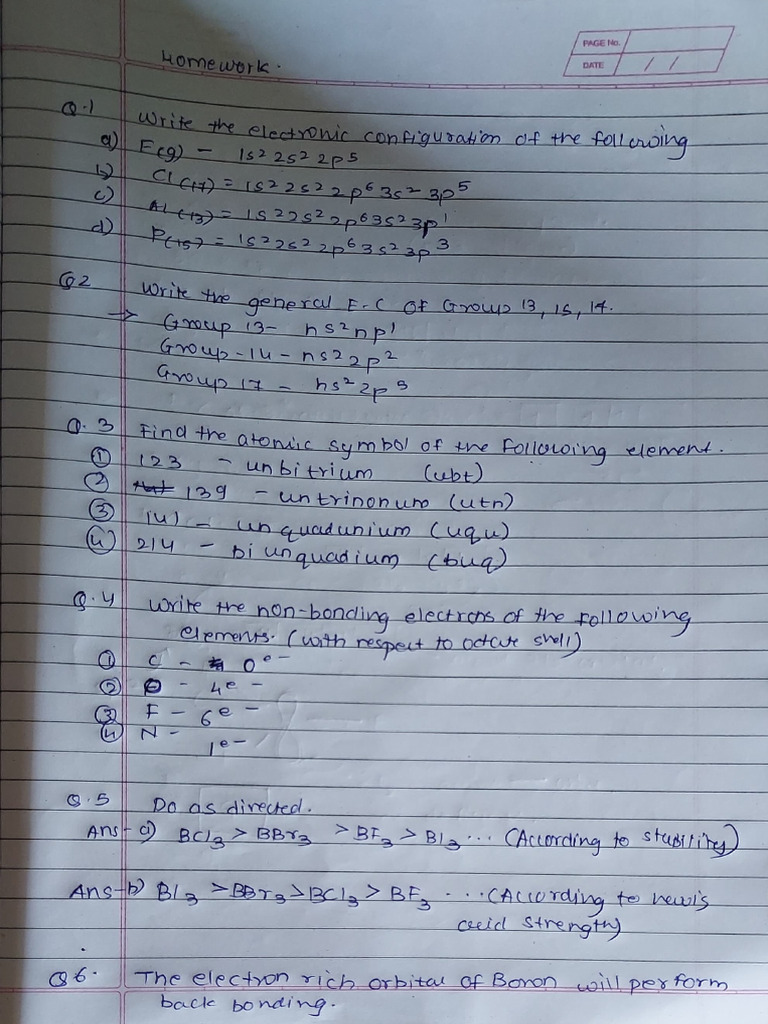 Homework.
PAGE No.
DATE / /
Q.1 Write the electronic configuration of the following
a) F(9) - 1s² 2s² 2p⁵
b) Cl (17) = 1s² 2s² 2p⁶ 3s² 3p⁵
c) AL (13) = 1s² 2s² 2p⁶ 3s² 3p¹
d) P(15) = 1s² 2s² 2p⁶ 3s² 3p³
Q2 Write the general E.C of Group 13, 15, 17.
→ Group 13- ns² np¹
Group-14 - ns² 2p²
Group 17 - ns² 2p⁵
Q.3 Find the atomic symbol of the following element.
① 123 - unbitrium (ubt)
② 139 - untrinonum (utn)
③ 141 - unquadunium (uqu)
④ 214 - biunquadium (buq)
Q.4 Write the non-bonding electrons of the following
elements. (with respect to octate shell)
① C - 0e-
② O - 4e-
③ F - 6e-
④ N - 1e-
Q.5 Do as directed.
Ans- a) BCl₃ > BBr₃ > BF₃ > BI₃ ... (According to stability)
Ans- b) BI₃ > BBr₃ > BCl₃ > BF₃ ... (According to lewis
acid strength)
Q6. The electron rich orbital of Boron will perform
back bonding.